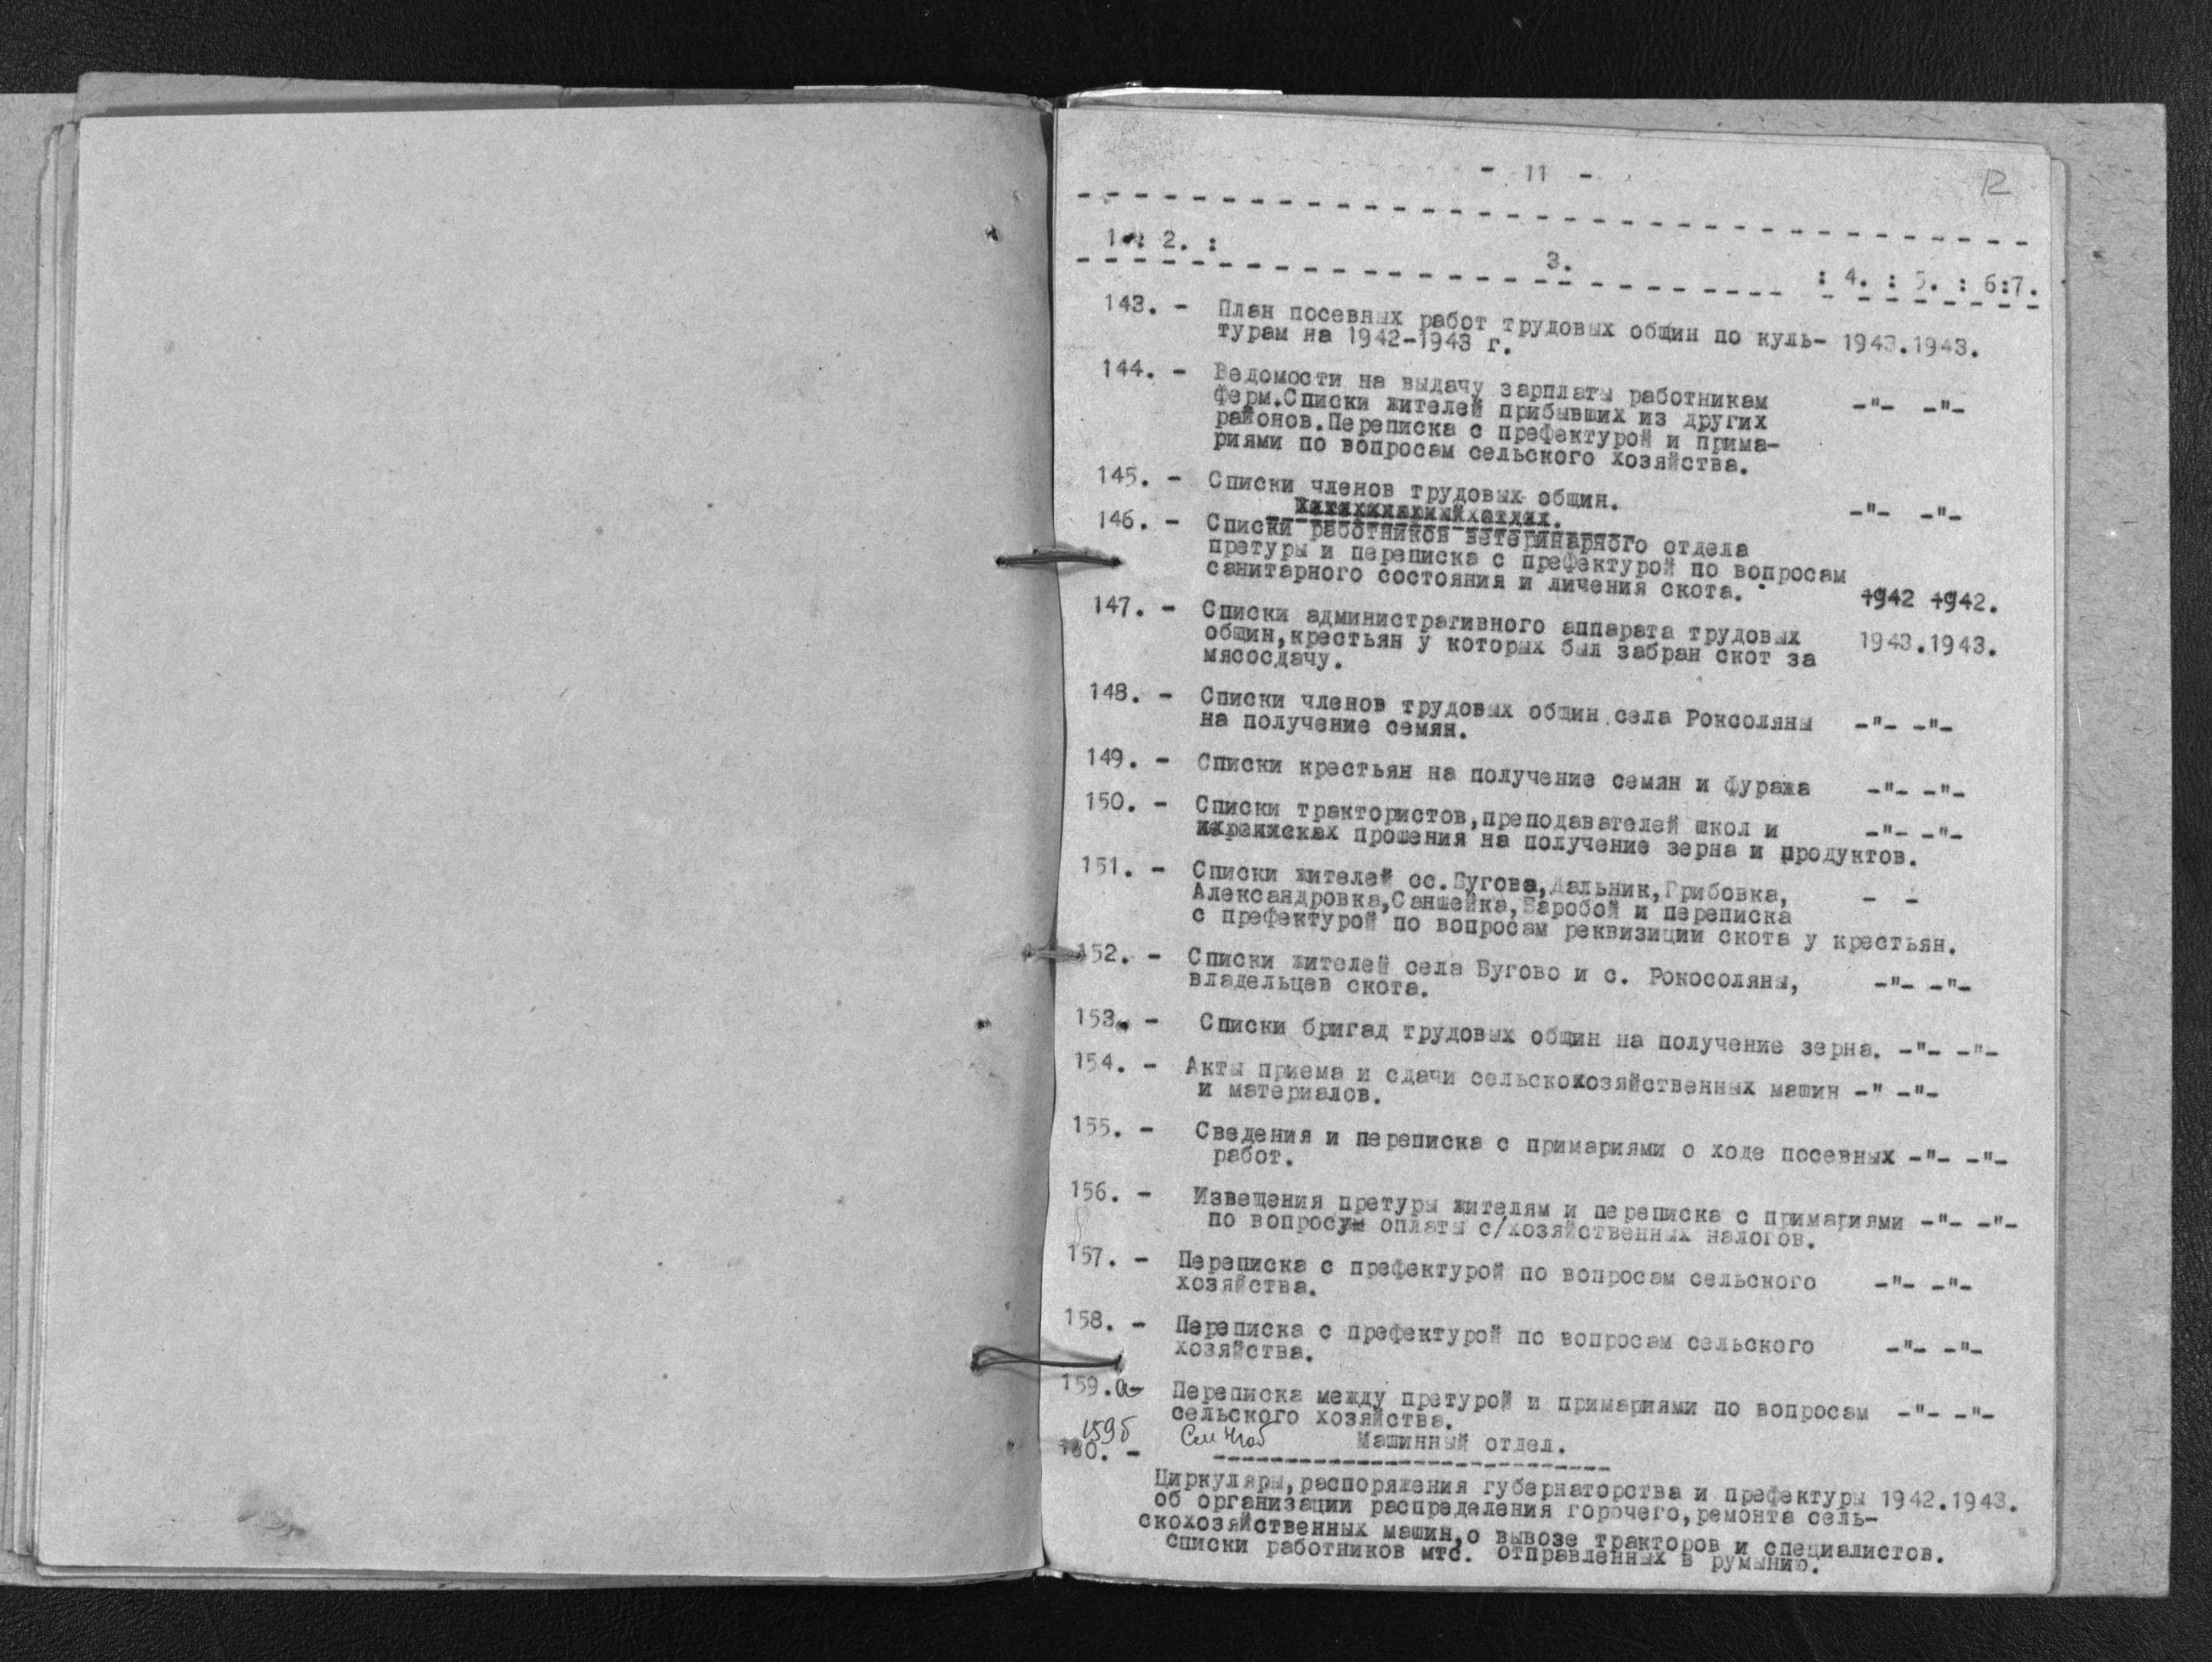 - 11 -
12
1.: 2. : 3. : 4. : 5. : 6:7.
143. - План посевных работ трудовых общин по куль- 1943.1943.
турам на 1942-1943 г.
144. - Ведомости на выдачу зарплаты работникам -"- -"-
ферм.Списки жителей прибывших из других
районов.Переписка с префектурой и прима-
риями по вопросам сельского хозяйства.
145. - Списки членов трудовых общин. -"- -"-
146. - Списки работников ветеринарного отдела
претуры и переписка с префектурой по вопросам
санитарного состояния и личения скота. 1942 1942.
147. - Списки административного аппарата трудовых 1943.1943.
общин,крестьян у которых был забран скот за
мясосдачу.
148. - Списки членов трудовых общин села Роксоляны -"- -"-
на получение семян.
149. - Списки крестьян на получение семян и фуража -"- -"-
150. - Списки трактористов,преподавателей школ и -"- -"-
прошения на получение зерна и продуктов.
151. - Списки жителей сс.Бугова,Дальник,Грибовка, - -
Александровка,Саншейка,Баробой и переписка
с префектурой по вопросам реквизиции скота у крестьян.
152. - Списки жителей села Бугово и с. Рокосоляны, -"- -"-
владельцев скота.
153. - Списки бригад трудовых общин на получение зерна. -"- -"-
154. - Акты приема и сдачи сельскохозяйственных машин -" -"-
и материалов.
155. - Сведения и переписка с примариями о ходе посевных -"- -"-
работ.
156. - Извещения претуры жителям и переписка с примариями -"- -"-
по вопросу оплаты с/хозяйственных налогов.
157. - Переписка с префектурой по вопросам сельского -"- -"-
хозяйства.
158. - Переписка с префектурой по вопросам сельского -"- -"-
хозяйства.
159.а- Переписка между претурой и примариями по вопросам -"- -"-
сельского хозяйства.
159б
Машинный отдел.
160. -
Циркуляры,распоряжения губернаторства и префектуры 1942.1943.
об организации распределения горючего,ремонта сель-
скохозяйственных машин,о вывозе тракторов и специалистов.
Списки работников мтс. отправленных в румынию.